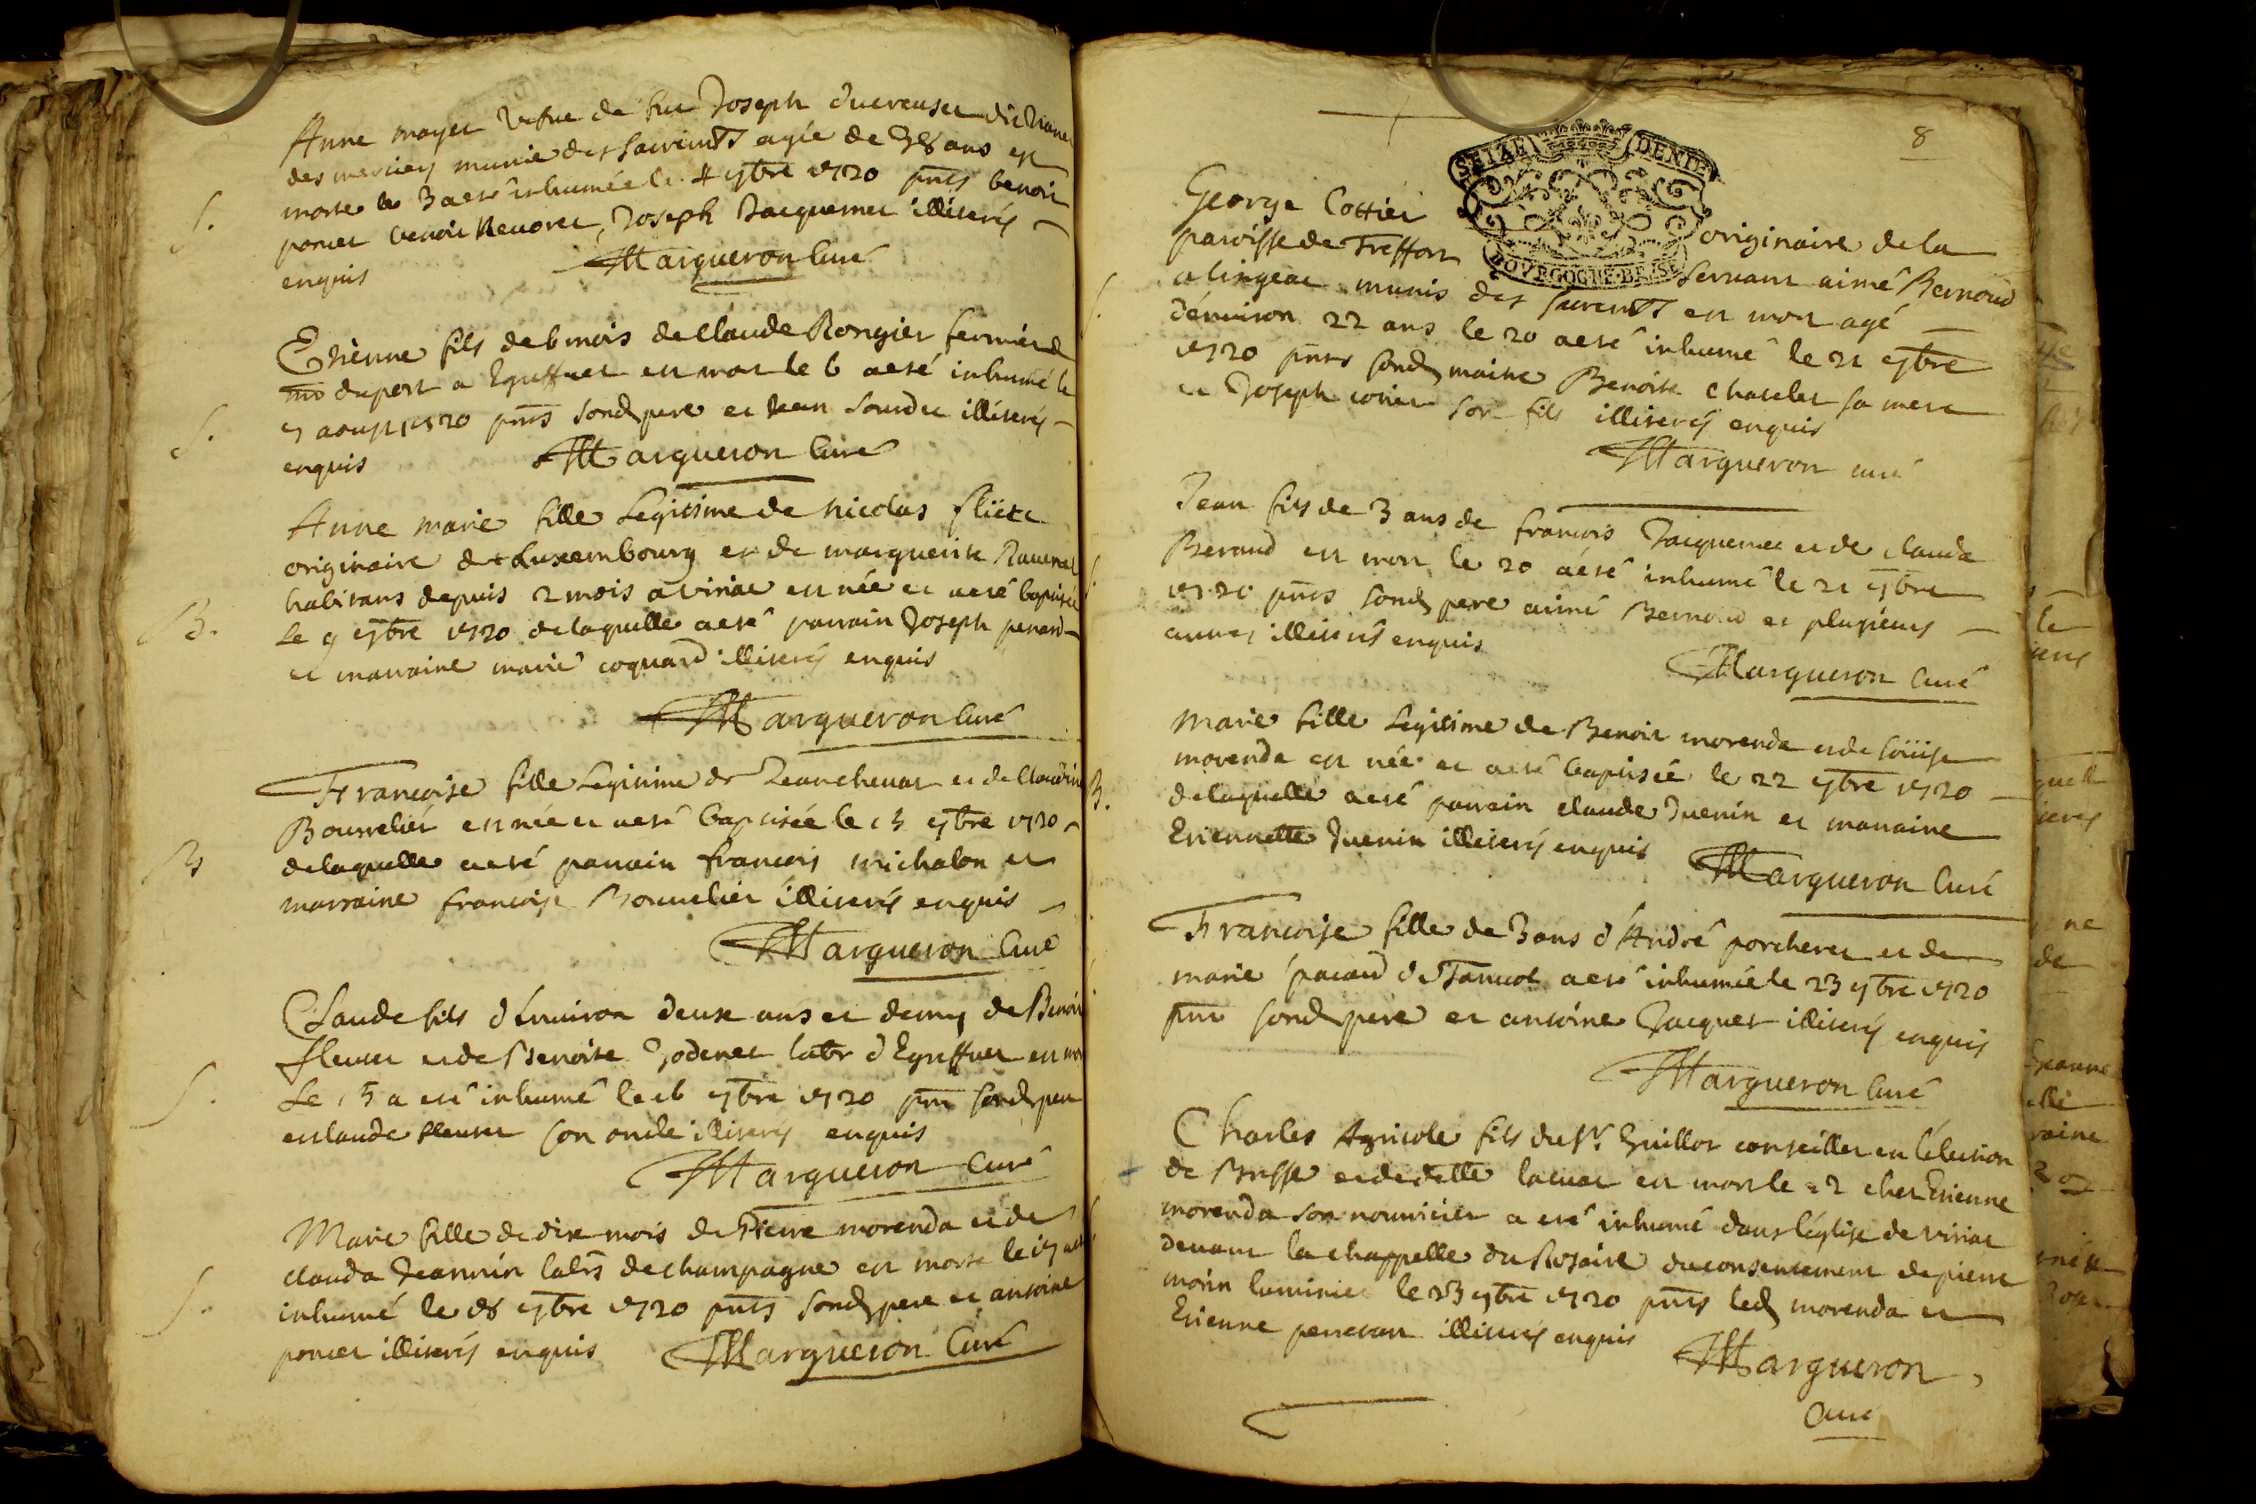 Anne mayet vefve de feu Joseph ducreuset dictriane
des merciers munie des sacremts agée de 78 ans est
morte le 3 a eté inhumée le 4 7bre 1720 pnts benoit
poncet benoit Revoret, Joseph Jacquemet illiterés
enquis
Margueron Curé
S.
Etienne fils de 6 mois de Claude Rongier fermier de
mr duport a Eguffuet est mort le 6 a eté inhumé le
7 aoust 1720 pnts sond pere et Jean Sourdu illiterés
enquis
Margueron Curé
S.
Anne marie fille Legitime de nicolas fliete
originaire de Luxembourg et de marguerite Ravenat
habitans depuis 2 mois a viriat est née et a eté baptisée
Le 9 7bre 1720 de laquelle a eté parrain Joseph perard
et marraine marie coquard illiterés enquis
Margueron Curé
B.
Francoise fille Legitime de Jean chenat et de Claudine
Bourrelier est née et a eté baptisée le 15 7bre 1720
de laquelle a eté parrain francois michalon et
marraine francoise Bourrelier illiterés enquis
Margueron Curé
B
Claude fils d'Environ deux ans et demy de Benoit
fleuret et de Benoite Godenet labr d'Eguffuet est mort
Le 15 a eté inhumé le 16 7bre 1720 pnt sond pere
et claude fleuret son oncle illiterés enquis
Margueron Curé
S.
Marie fille de dix mois de Pierre morenda et de
clauda Jeannin labrs de champagne est morte le 17 a eté
inhumé le 18 7bre 1720 pnts sond pere et antoine
poncet illiterés enquis
Margueron Curé
S.
8
SEIZE DENIE
BOVRGOGNE BRESSE
George Cottier originaire de la
paroisse de Treffort servant aimé Bernoud
a lingeat munis des sacremts est mort agé
d'environ 22 ans le 20 a eté inhumé le 21 7bre
1720 pnts sond maitre Benoite chatelet sa mere
et Joseph cotier son fils illiterés enquis
Margueron curé
Jean fils de 3 ans de francois Jacquemet et de clauda
Beraud est mort le 20 a eté inhumé le 21 7bre
1720 pnts sond pere aimé Bernoud et plusieurs
autres illiterés enquis
Margueron Curé
B.
Marie fille Legitime de Benoit morenda et de Loüise
morenda est née et a eté baptisée le 22 7bre 1720
de laquelle a eté parrain claude Juenin et marraine
Etiennette Juenin illiterés enquis
Margueron Curé
Francoise fille de 3 ans d'André porcheret et de
marie pacaud de Tanvol a eté inhumée le 23 7bre 1720
pnt sond pere et antoine Jacquet illiterés enquis
Margueron Curé
Charles Agricole fils du Sr. Guillot conseiller en l'élection
de Bresse et de delle lacuat est mort le 22 chez Etienne
morenda son nourricier a eté inhumé dans l'église de viriat
devant la chappelle du Rosaire du consentement de pierre
morin luminier le 23 7bre 1720 pnts led morenda et
Etienne perraton illiterés enquis
Margueron
Curé